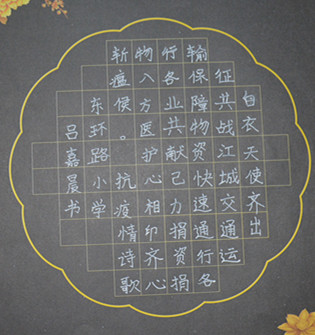 白衣天使齐出
征共战江城交通运
输保障物资快速通行各
行各业共献己力捐资捐
物八方医护心相印齐心
斩瘟侯。抗疫情诗歌
东环路小学
吕嘉晨书